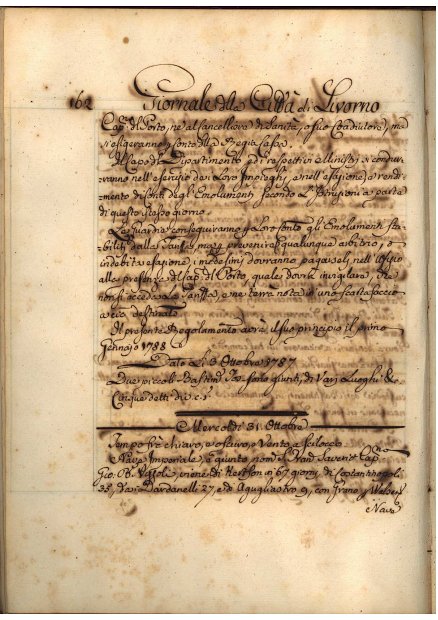 162 Giornale della Città di Livorno
Cap.ⁿ del Porto, nè al Cancelliere di Sanità, o suo Coadiutore, ma
si esigeranno p conto della Regia Cassa.
Il Capo del Dipartimento, ed i respettivi Ministri si condur-
ranno nell'esercizio dei Loro Impieghi, e nell'esazione, e rendi-
mento di Conti degli Emolumenti secondo L'Istruzioni a parte
di questo stesso giorno.
Le Guardie conseguiranno p Loro Conto gli Emolumenti sta-
biliti dalla Tariffa, ma p prevenire qualunque arbitrio, o
indebita esazione, i medesimi dovranno pagarsi nell'Ufizio
alla presenza del Cap. del Porto, quale dovrà invigilare, che
non si ecceda La Tariffa, e ne terrà nota in uno scartafaccio
a ciò destinato.
Il presente Regolamento avrà il suo principio il primo
Gennajo 1788
Dato Li 3 Ottobre 1787
Due piccoli Bastim.ti sono giunti, di Varj Luoghi &
Cinque detti di
Mercoldì 31. Ottobre
Tempo frà chiaro, e oscuro, e Vento a Scilocco
Nave Imperiale, è giunta nom.
Gio. B. viene di Kerson in 67 giorni, di Costantinopoli
35, Dardanelli 27, e da 9, con Grano, e
Nave